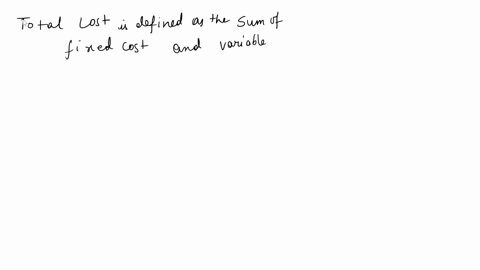 Total Cost is defined as the sum of
fixed cost and variable